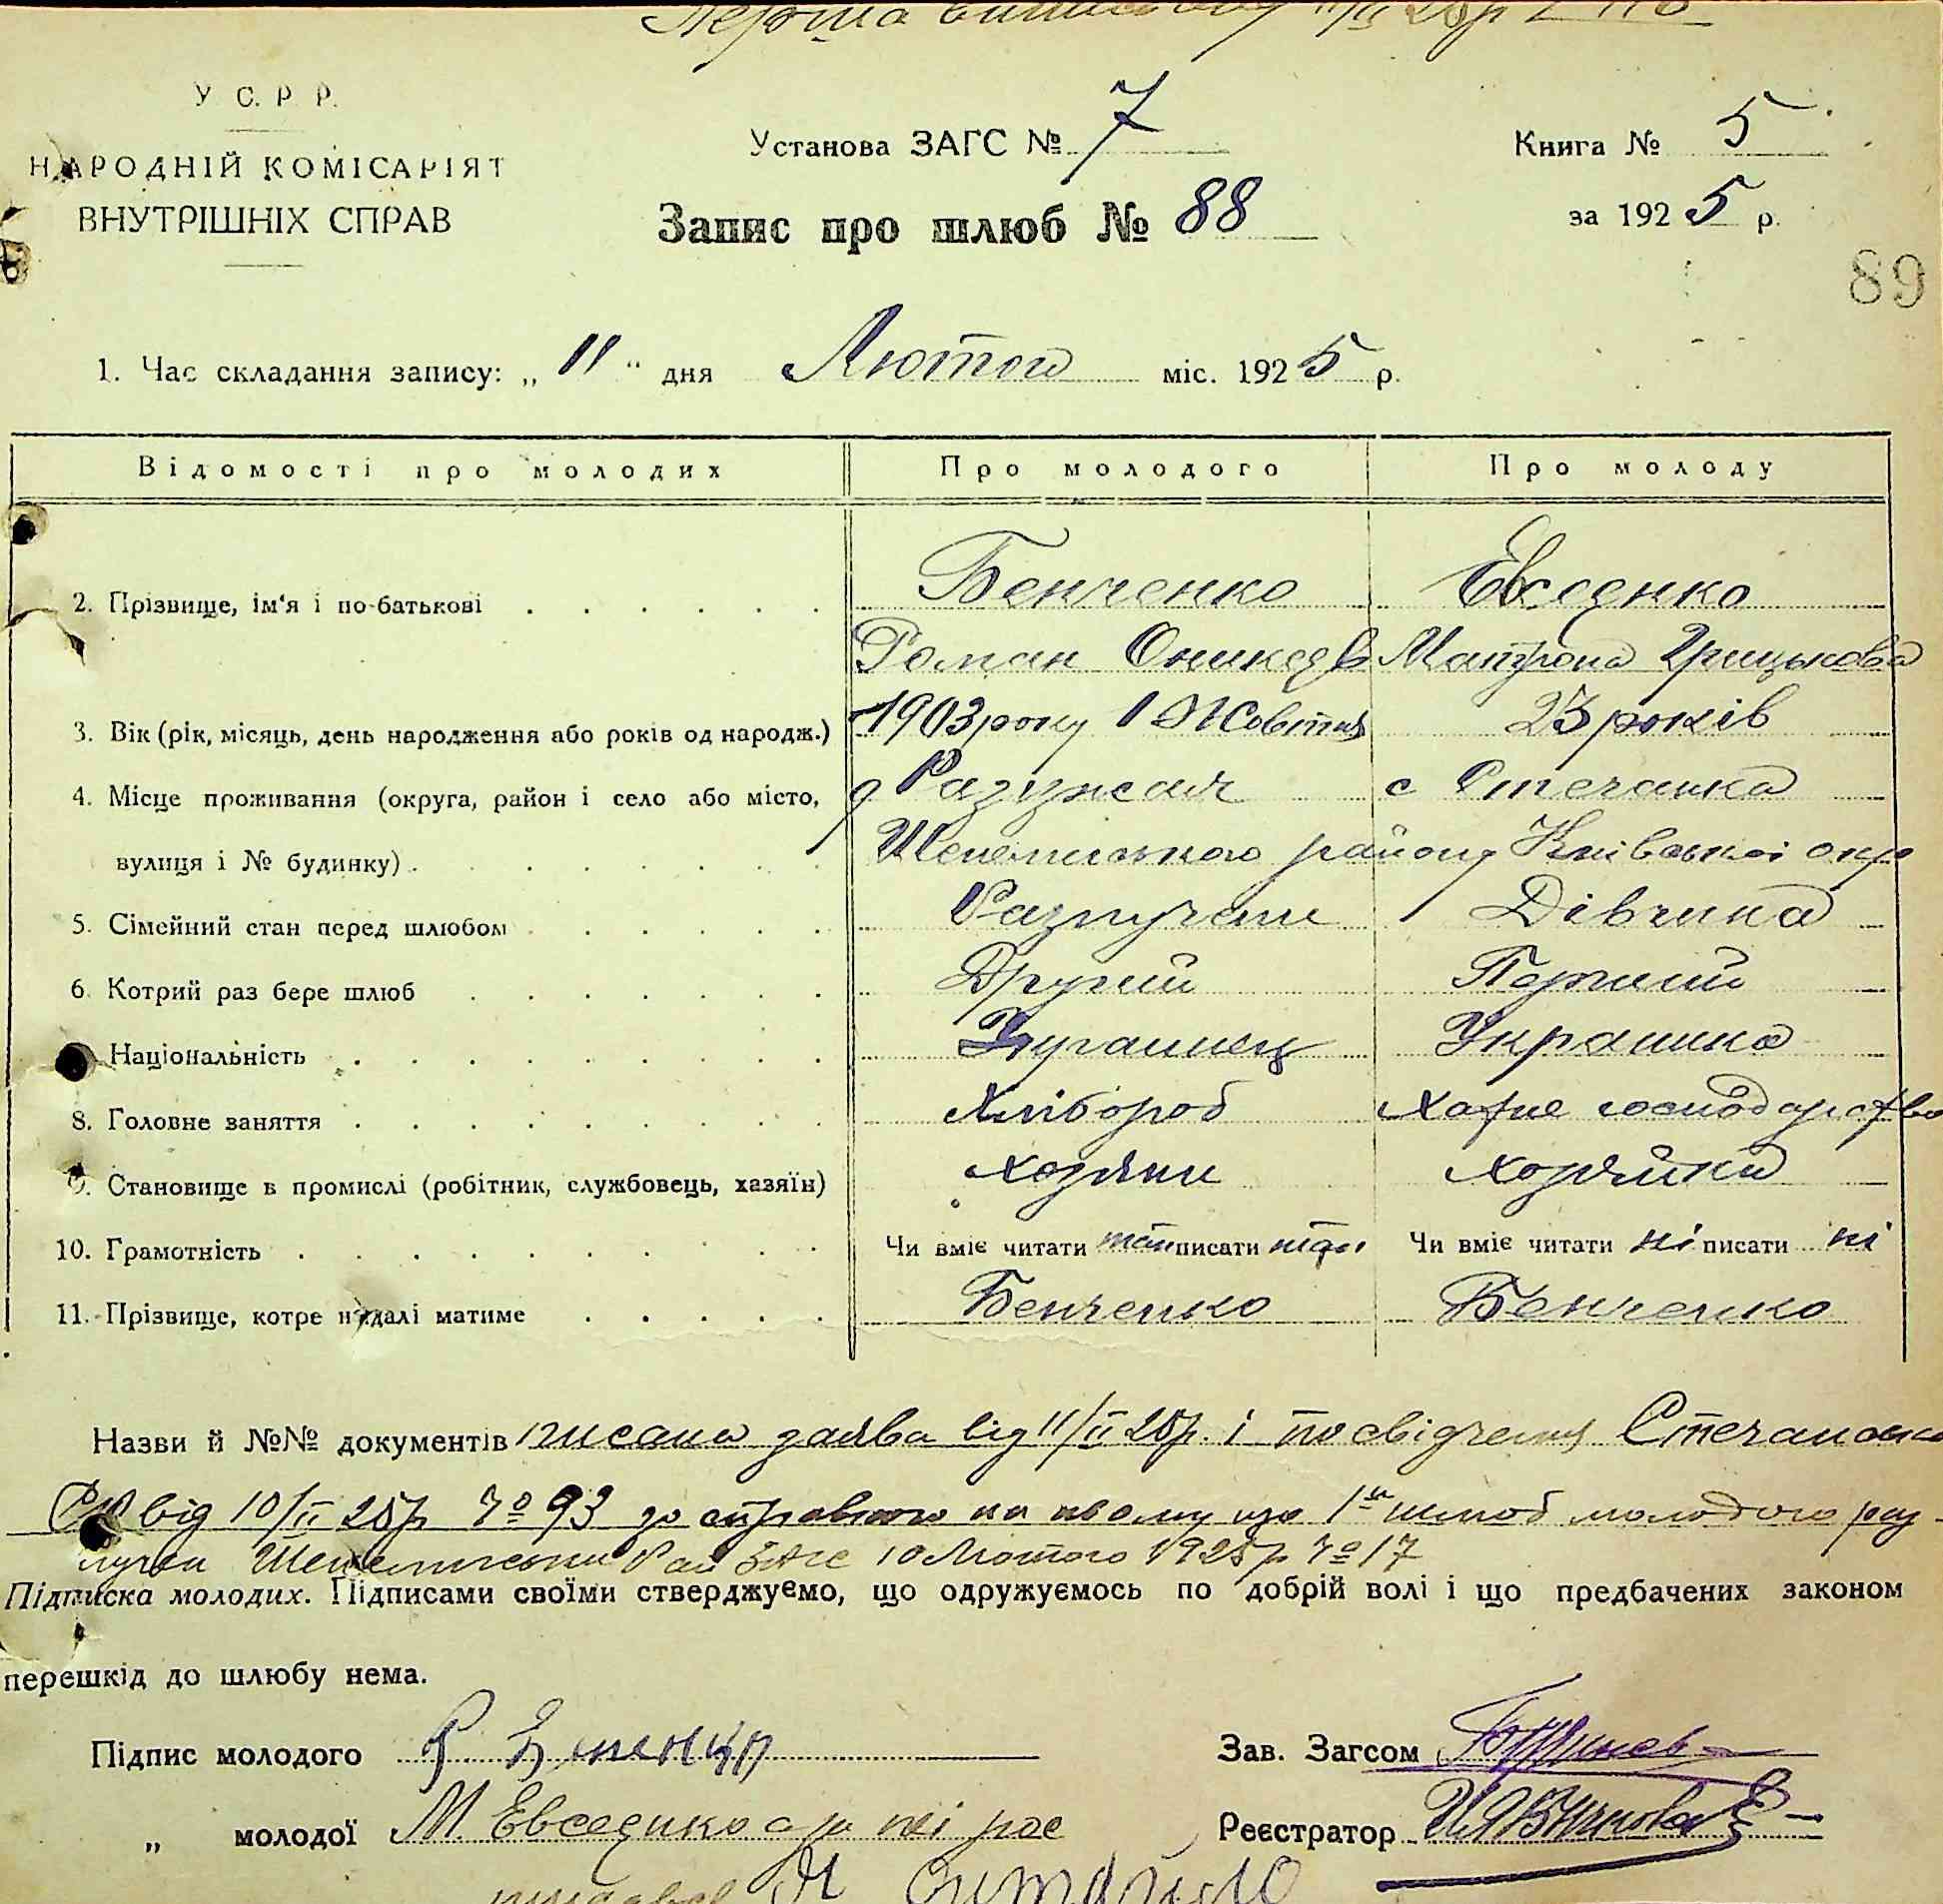 У С. Р. Р.
НАРОДНІЙ КОМІСАРІЯТ
ВНУТРІШНІХ СПРАВ
Установа ЗАГС № 7
Запис про шлюб № 88
Книга № 5
за 1925 р.
89
1. Час складання запису: „ 11 “ дня Лютого міс. 1925 р.
Відомості про молодих Про молодого Про молоду
2. Прізвище, ім'я і по-батькові Бенченко Евсеенко
Роман Оникеев Матрона Грицькова
3. Вік (рік, місяць, день народження або років од народж.) 1903 року 1 Жовтня 23 років
4. Місце проживання (округа, район і село або місто, с Стечанка
вулиця і № будинку) району Київської окр
5. Сімейний стан перед шлюбом Дівчина
6. Котрий раз бере шлюб Другий Перший
Національність Украинка
8. Головне заняття Хлібороб Хатне господарство
9. Становище в промислі (робітник, службовець, хазяїн) Хозяин Хозяйка
10. Грамотність Чи вміє читати так писати так Чи вміє читати ні писати ні
11. Прізвище, котре надалі матиме Бенченко Бенченко
Назви й №№ документів писана заява від 11/II 25р. і посвідчення
від 10/II 25р № 93 що 1й шлюб молодого роз
10 Лютого 1925р № 17
Підписка молодих. Підписами своїми стверджуємо, що одружуємось по добрій волі і що предбачених законом
перешкід до шлюбу нема.
Підпис молодого
Зав. Загсом
„ молодої М. Евсеенко а за неї рос
Реєстратор